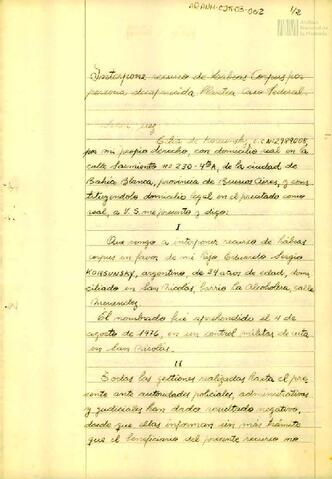 ADANM-CJTCB-002 1/2
Archivo
Nacional de
la Memoria
Interpone recurso de Hábeas Corpus por
persona desaparecida Plantea Caso Federal.-
Señor Juez
de Korsunsky, L.C Nº2989008,
por mi propio derecho, con domicilio real en la
calle Sarmiento nº 230-4ºA, de la ciudad de
Bahía Blanca, provincia de Buenos Aires, y cons
tituyéndolo domicilio legal en el precitado como
real, a V.S. me presento y digo:
I
Que vengo a interponer recurso de hábeas
corpus en favor de mi hijo Eduardo Sergio
KORSUNSKY, argentino, de 24 años de edad, domi
ciliado en San Nicolás, barrio La Alcoholera, calle
El nombrado fué aprehendido el 4 de
agosto de 1976, en un control militar de ruta
en San Nicolás.
II
Todas las gestiones realizadas hasta el pre
sente ante autoridades policiales, administrativas
y judiciales han dado resultado negativo,
dado que ellas informan sin más trámite
que el beneficiario del presente recurso no